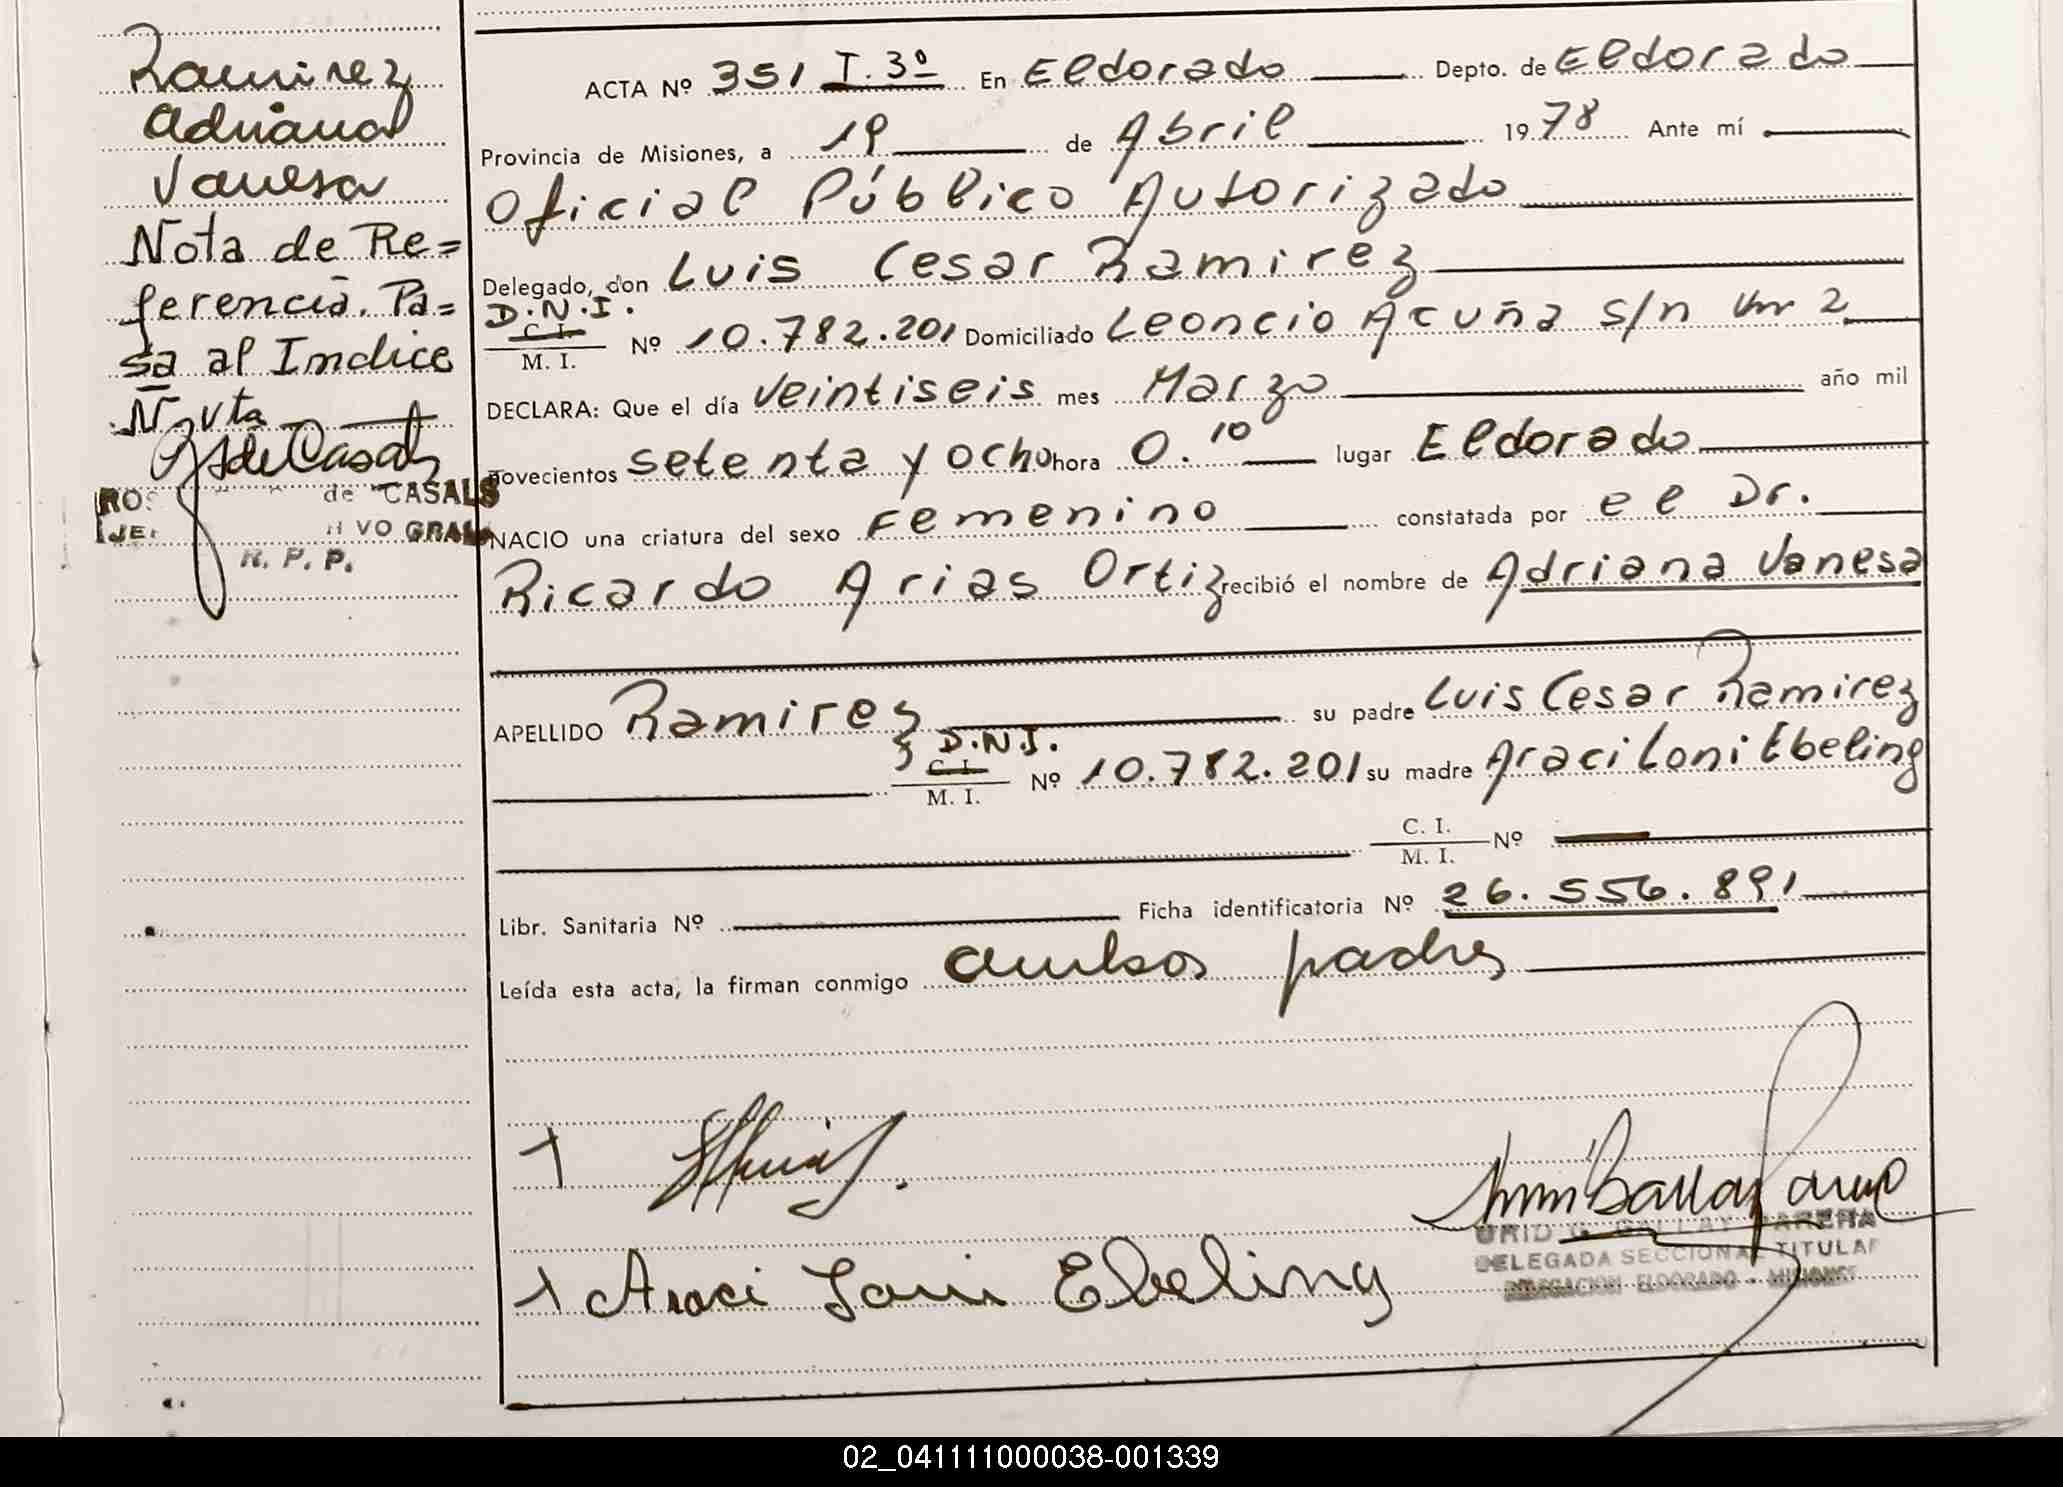 Ramirez
Adriana
Vanesa
Nota de Re=
ferencia. Pa=
sa al Indice
N. vta
de Casals
de CASALS
VO GRAL
R. P. P.
ACTA Nº 351 T. 3º En Eldorado Depto. de Eldorado
Provincia de Misiones, a 19 de Abril 1978 Ante mí
Oficial Público Autorizado
Delegado, don Luis Cesar Ramirez
D.N.I.
C. I.
M. I. Nº 10.782.201 Domiciliado Leoncio Acuña s/n km 2
DECLARA: Que el día veintiseis mes Marzo año mil
novecientos setenta y ocho hora 0.10 lugar Eldorado
NACIO una criatura del sexo Femenino constatada por el Dr.
Ricardo Arias Ortiz recibió el nombre de Adriana Vanesa
APELLIDO Ramirez su padre Luis Cesar Ramirez
D.N.I.
C. I.
M. I. Nº 10.782.201 su madre Araci Loni Ebeling
C. I.
M. I. Nº
Libr. Sanitaria Nº Ficha identificatoria Nº 26.556.891
Leída esta acta, la firman conmigo ambos padres
Araci Loni Ebeling
G. GALLAY BARENA
DELEGADA SECCIONAL TITULAR
DELEGACION ELDORADO - MISIONES
02_041111000038-001339